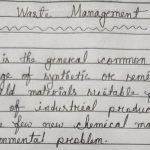 Waste Management
is the general common
ge of synthetic or
ld materials suitable
of industrial produc
few new chemical ma
onmental problem.